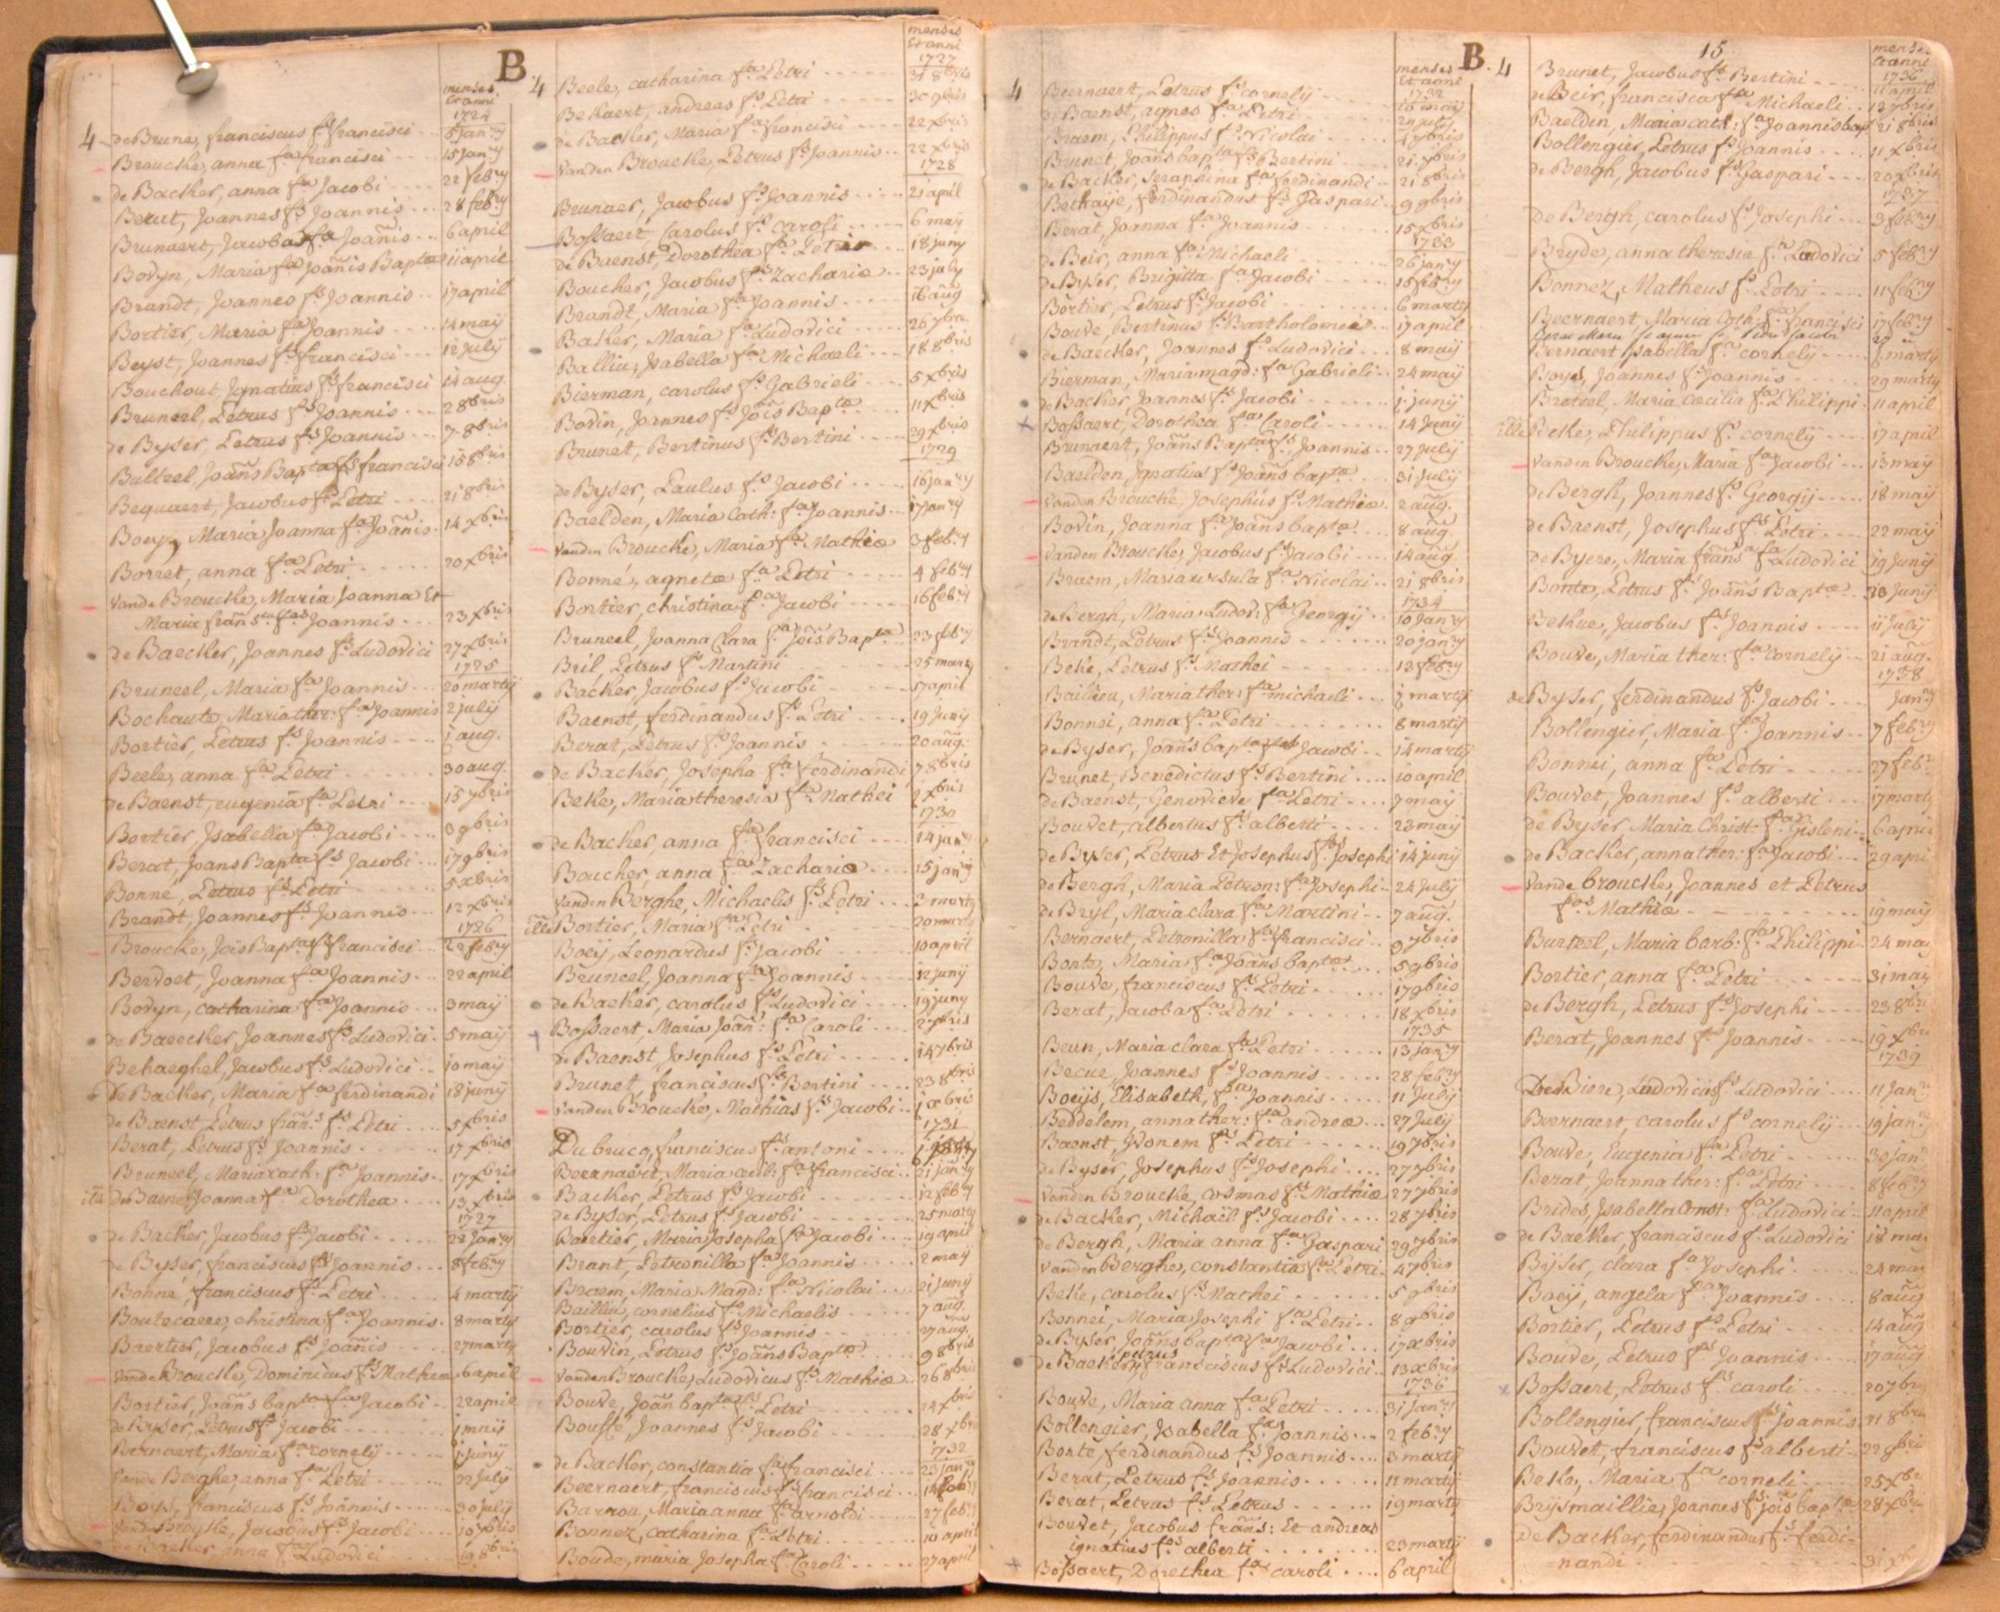 B
menses
et anni
1724
4 de Brune, franciscus fs francisci 5 Janry
Broucke, anna fa francisci 15 Janry
de Backer, anna fa Jacobi 22 febry
Berut, Joannes fs Joannis 28 febry
Brunaert, Jacoba fa Joañis 6 april
Bovyn, Maria fa Joañis Baptæ 11 april
Brandt, Joannes fs Joannis 17 april
Bortier, Maria fa Joannis 14 maÿ
Beyst, Joannes fs francisci 12 July
Bouchout Jgnatius fs francisci 14 aug.
Bruneel, Petrus fs Joannis 2 8bris
de Byser, Petrus fs Joannis 7 8bris
Bulteel Joañs Bapta fs francisci 18 8bris
Bequaert, Jacobus fs Petri 21 8bris
Boeyz Maria Joanna fa Joañis 14 xbris
Borret, anna fa Petri 20 xbris
Vande Broucke, Maria Joanna Et
Maria frans fas Joannis 23 xbris
de Baecker, Joannes fs Ludovici 27 xbris
1725
Bruneel, Maria fa Joannis 20 martÿ
Bochaute, Maria ther: fa Joannis 2 July
Bortier, Petrus fs Joannis 1 aug.
Beele, anna fa Petri 30 aug.
de Baenst, eugenia fa Petri 15 7bris
Bortier Jsabella fa Jacobi 3 9bris
Berat, Joans Bapta fs Jacobi 17 9bris
Bonne, Petrus fs Petri 5 xbris
Brandt, Joannes fs Joannis 12 xbris
1726
Broucke, Jois Bapta fs francisci 22 febry
Bervoet, Joanna fa Joannis 22 april
Bovyn, catharina fa Joannis 3 maÿ
de Baeecker Joannes fs Ludovici 5 maÿ
Behaeghel, Jacobus fs Ludovici 10 maÿ
de Backer, Maria fa ferdinandi 18 junÿ
de Baenst, Petrus frañs fs Petri 5 xbris
Berat, Petrus fs Joannis 17 xbris
Bruneel, Maria cath. fa Joannis 17 xbris
De Baenst Joanna fa Dorothea 13 xbris
1727
de Backer, Jacobus fs Jacobi 22 Janry
de Byser, franciscus fs Joannis 8 febry
Bonne, franciscus fs Petri 4 martÿ
Boutecaere, christina fa Joannis 8 martÿ
Baertier, Jacobus fs Joañis 27 martÿ
Vande Broucke, Dominicus fs Mathea 6 april
Bortier, Joañs bapta fs Jacobi 22 april
de Byser, Petrus fs Jacobi 1 maÿ
Bernaert, Maria fa cornely 1 Junÿ
Vande Berghe, anna fa Petri 22 July
Boeys, franciscus fs Joannis 30 July
Vande Broucke, Jacobus fs Jacobi 10 7bris
de Backer, anna fa Ludovici 19 8bris
menses
et anni
1727
4 Beele, catharina fa Petri 31 8bris
Bekaert, andreas fs Petri 30 9bris
de Backer, Maria fa francisci 22 xbris
Vanden Broucke, Petrus fs Joannis 22 xbris
1728
Brunaer, Jacobus fs Joannis 21 april
Bossaert, Carolus fs caroli 6 maÿ
de Baenst, Dorothea fa Petri 18 Juny
Boucher, Jacobus fs Zachariæ 23 july
Brandt, Maria fa Joannis 16 aug
Backer, Maria fa Ludovici 26 7bris
Balliu, Jsabella fa Michaeli 18 8bris
Bierman, carolus fs Gabrieli 5 xbris
Bovin, Joannes fs Jois Baptæ 11 xbris
Brunet, Bertinus fs Bertini 29 xbris
1729
de Byser, Paulus fs Jacobi 16 janry
Baelden, Maria Cath: fa Joannis 17 Janry
Vanden Broucke, Maria fa Mathiæ 3 febry
Bonné, agneta fa Petri 4 febry
Bortier, christina fa Jacobi 16 febry
Bruneel, Joanna Clara fa Jois Bapta 23 feby
Bril, Petrus fs Martini 25 marty
Backer, Jacobus fs Jacobi 5 april
Baenst, ferdinandus fs Petri 19 Juny
Berat, Petrus fs Joannis 20 aug.
de Backer, Josepha fa ferdinandi 7 8bris
Beke, Maria theresia fa Mathei 2 xbris
1730
de Backer, anna fa francisci 14 janry
Boucher, anna fa Zachariæ 15 janry
Vanden Berghe, Michaelis fs Petri 2 marty
Bortier, Maria fa Petri 20 marty
Boeÿ, Leonardus fs Jacobi 10 april
Bruneel, Joanna fa Joannis 12 junÿ
de Backer, carolus fs Ludovici 19 juny
Bossaert, Maria Joañ: fa Caroli
de Baenst, Josephus fs Petri 14 7bris
Brunet, franciscus fs Bertini 23 8bris
Vanden Broucke, Mathias fs Jacobi 1 xbris
1731
Dubrucq, franciscus fs antoni
Beernaert, Maria cecili fa francisci 21 janry
Backer, Petrus fs Jacobi 12 feby
de Byser, Petrus fs Jacobi 25 marty
Baertier, Maria Josepha fa Jacobi 19 april
Brant, Petronilla fa Joannis 2 maÿ
Braem, Maria Mand: fa Nicolai 21 junÿ
Bailliu, cornelius fs Michaelis 7 aug.
Bortier, carolus fs Joannis 27 aug.
Bouvin, Petrus fs Joañs Baptæ 9 8bris
Vanden Broucke, Ludovicus fs Mathiæ 26 8bris
Bouve, Joañ bapta fs Petri 24 xbris
Bousse, Joannes fs Jacobi 28 xbris
1732
de Backer, constantia fa francisci 23 janry
Beernaert, franciscus fs francisci 14 febry
Barrou, Maria anna fa arnoldi 27 feby
Bonnez, catharina fa Petri 10 april
Boude, maria Josepha fa Caroli 27 april
B.
menses
et anni
1732
4 Beernaert, Petrus fs cornelÿ 16 maÿ
de Baenst, agnes fa Petri 24 july
Braem, Philippus fs Nicolai 4 7bris
Brunet, Joañs bapta fs Bertini 21 7bris
de Backer, Seraphina fa ferdinandi 21 8bris
Bethaye, ferdinandus fs Gaspari 9 9bris
Berat, Joanna fa Joannis 15 xbris
1733
de Beir, anna fa Michaeli 26 janry
de Byser, Brigitta fa Jacobi 15 febry
Bortier, Petrus fs Jacobi 6 martÿ
Bouve, Bertinus fs Bartholomeæ 17 april
de Baecker, Joannes fs Ludovici 8 maÿ
Bierman, Maria magd: fa Gabrieli 24 maÿ
de Backer, Joannes fs Jacobi 1 junÿ
Bossaert, Dorothea fa Caroli 14 Junÿ
Brunaert, Joañs Bapta fs Joannis 27 July
Baelden, Jgnatius fs Joañs baptæ 31 July
Vanden Broucke, Josephus fs Mathiæ 2 aug.
Bovin, Joanna fa Joañs baptæ 8 aug
Vanden Broucke, Jacobus fs Jacobi 14 aug
Braem, Maria ursula fa Nicolai 21 8bris
1734
de Bergh, Maria Ludov: fa Georgÿ 10 Janry
Brandt, Petrus fs Joannis 20 janry
Beke, Petrus fs Mathei 12 febry
Bailieu, Maria ther: fa michaeli 1 martÿ
Bonnei, anna fa Petri 8 martÿ
de Byser, Joañs bapta fs Jacobi 14 martÿ
Brunet, Benedictus fs Bertini 10 april
de Baenst, Genevieve fa Petri 7 maÿ
Bouvet, albertus fs alberti 23 maÿ
de Byser, Petrus Et Josephus fs Josephi 14 junÿ
de Bergh, Maria Petron: fa Josephi 24 July
de Bryl, Maria clara fa Martini 7 aug.
Bernaert, Petronilla fa francisci 9 7bris
Bonte, Maria fa Joañs baptæ 5 9bris
Bouve, franciscus fs Petri 17 9bris
Berat, Jacoba fa Petri 18 xbris
1735
Beun, Maria clara fa Petri 13 janry
Becue, Joannes fs Joannis 28 febry
Boeÿs, Elisabeth, fa Joannis 11 July
Beddelem, anna ther: fa andreæ 27 July
Baenst, Jdonem fs Petri 19 7bris
de Byser, Josephus fs Josephi 27 7bris
Vanden Broucke, cosmas fs Mathiæ 27 7bris
de Backer, Michaël fs Jacobi 28 7bris
de Bergh, Maria anna fa Gaspari 29 7bris
Vanden Berghe, constantia fa Petri 4 7bris
Beke, carolus fs Mathei 5 9bris
Bonnei, Maria Josephi fa Petri 8 9bris
de Byser Joañs bapta fs Jacobi 17 xbris
de Backer, franciscus fs Ludovici 13 xbris
1736
Bouve, Maria anna fa Petri 31 janry
Bollengier, Jsabella fa Joannis 2 feby
Bonte, ferdinandus fs Joannis 3 martÿ
Berat, Petrus fs Joannis 11 martÿ
Berat, Petrus fs Petrus 19 martÿ
Bouvet, Jacobus frañs: Et andreas
ignatius fos alberti 29 martÿ
Bossaert, Dorothea fa caroli 6 april
15
menses
et anni
1736
4 Brunet, Jacobus fs Bertini 11 april
de Beir, francisca fa Michaeli 12 7bris
Baelden, Maria cath: fa Joannis bap 21 8bris
Bollengier, Petrus fs Joannis 11 xbris
de Bergh, Jacobus fs Gaspari 20 xbris
1737
De Bergh, carolus fs Josephi 3 febry
Bryde, anna theresia fa Ludovici 5 febry
Bonnez, Matheus fs Petri 11 febry
Beernaert, Maria Cath: fa francisci 17 febry
Bernaert Jsabella fa cornelÿ 6 martÿ
Boyd, Joannes fs Joannis 29 martÿ
Breteel, Maria Cæcilia fa Philippi 11 april
Beke, Philippus fs cornelÿ 17 april
Vanden Broucke, Maria fa Jacobi 13 maÿ
de Bergh, Joannes fs Georgÿ 18 maÿ
de Baenst, Josephus fs Petri 22 maÿ
de Byere, Maria frans fa Ludovici 19 Junÿ
Bonte, Petrus fs Joañs Baptæ 20 Junÿ
Bekue, Jacobus fs Joannis 11 July
Bouve, Maria ther: fa Cornelÿ 21 aug.
1738
de Byser, ferdinandus fs Jacobi Janry
Bollengier, Maria fa Joannis 7 febry
Bonnei, anna fa Petri 27 feb
Bouvet, Joannes fs alberti 17 marty
de Byser Maria Christ: fa Gisleni 6 april
de Backer, anna ther: fa Jacobi 29 apri
Vande broucke, Joannes et Petrus
fos Mathiæ 19 maÿ
Burteel, Maria barb: fa Philippi 24 maÿ
Bortier, anna fa Petri 31 maÿ
de Bergh, Petrus fs Josephi 23 8bri
Berat, Joannes fs Joannis 19 xbr
1739
De Biere, Ludovicus fs Ludovici 11 Jan
Beernaert, carolus fs cornelÿ 19 jan
Bouve, Eugenia fa Petri 30 jan
Berat Joanna ther: fa Petri 8 feby
Brides, Jsabella Const: fa Ludovici 11 april
de Backer, franciscus fs Ludovici 18 ma
Byser, clara fa Josephi 24 may
Boeÿ, angela fa Joannis 8 aug
Bortier, Petrus fs Petri 14 aug
Bouve, Petrus fs Joannis 17 aug
Bossaert, Petrus fs caroli 20 7br
Bollengier franciscus fs Joannis 31 8br
Bouvet, franciscus fs alberti 22 9br
Beke, Maria fa corneli 25 xbr
Brysmaillie, Joannes fs Jois baptæ 28 xbr
De Backer, ferdinandus fs ferdi-
nandi 31 x